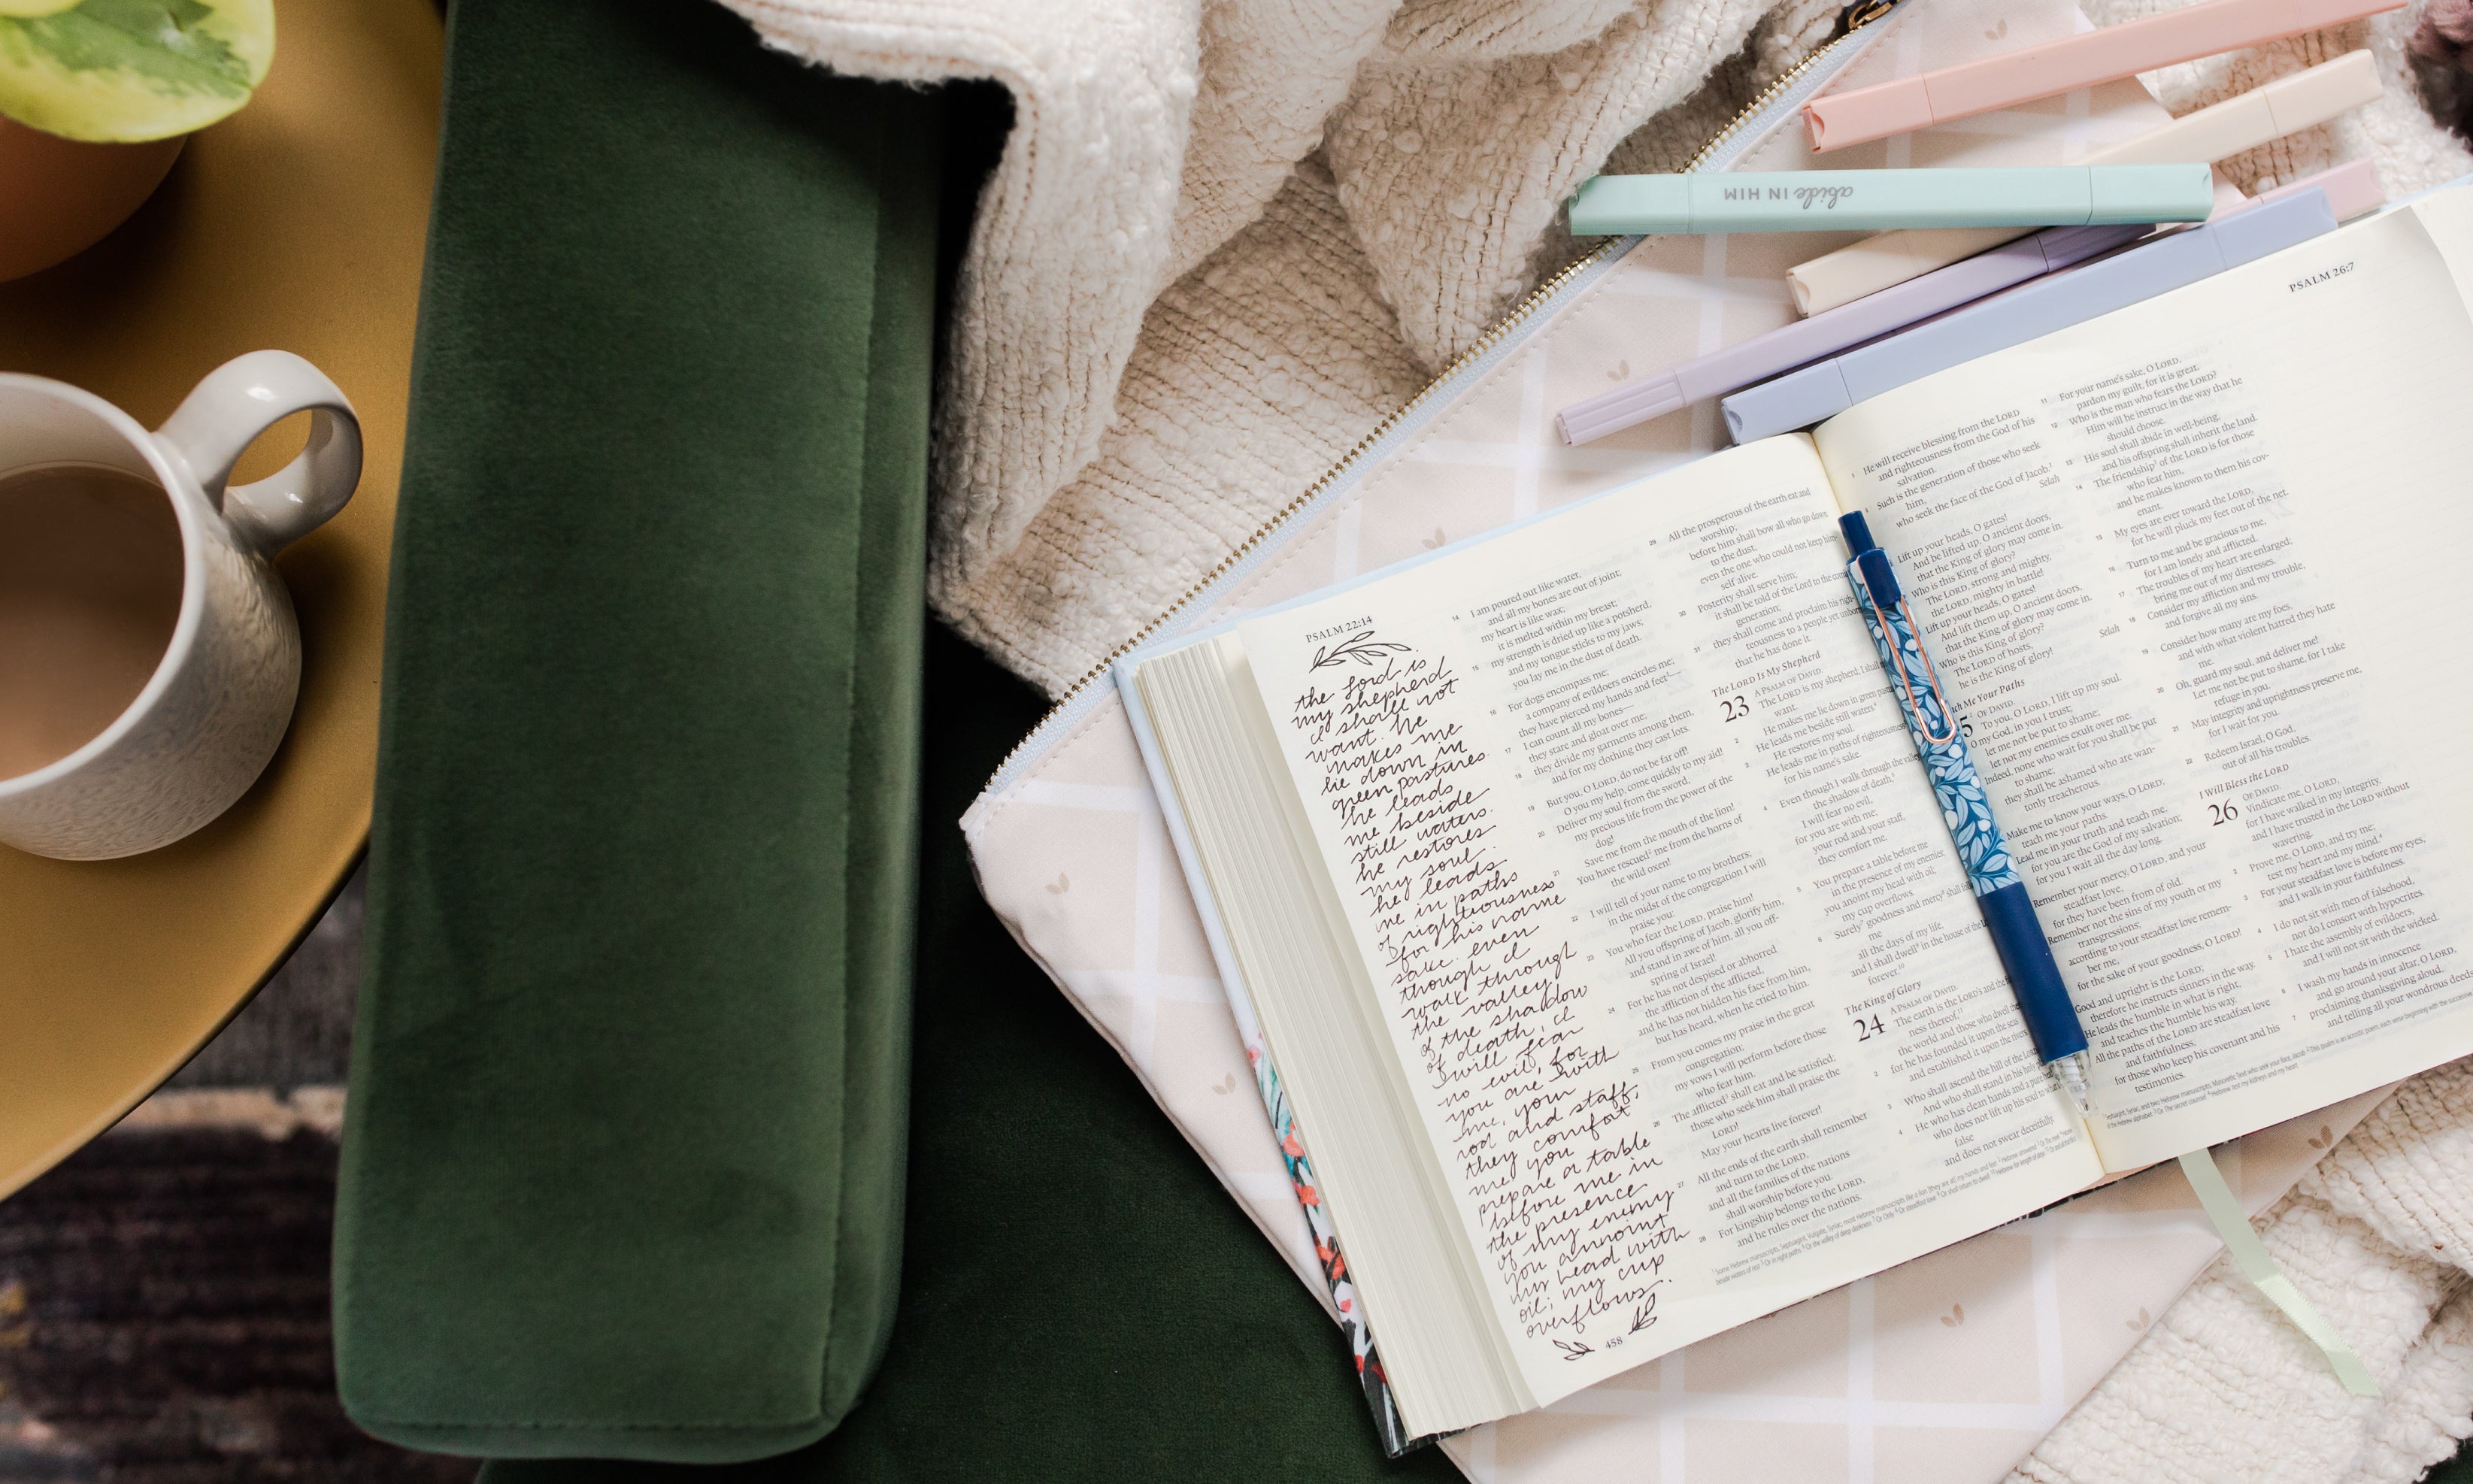 abide IN HIM
PSALM 22:14
the Lord is
my shepherd
I shall not
want. He
makes me
lie down in
green pastures.
he leads
me beside
still waters.
he restores
my soul.
he leads
me in paths
of rightiousness
for his name
sake. even
though I
walk through
the valley
of the shadow
of death, I
will fear
no evil, for
you are with
me, your
rod and staff,
they comfort
me you
prepare a table
before me in
the presence
of my enemy
you annoint
my head with
oil; my cup
overflows.
458
14 I am poured out like water,
and all my bones are out of joint;
my heart is like wax;
it is melted within my breast;
15 my strength is dried up like a potsherd,
and my tongue sticks to my jaws;
you lay me in the dust of death.
16 For dogs encompass me;
a company of evildoers encircles me;
they have pierced my hands and feet—
17 I can count all my bones—
they stare and gloat over me;
18 they divide my garments among them,
and for my clothing they cast lots.
19 But you, O LORD, do not be far off!
O you my help, come quickly to my aid!
20 Deliver my soul from the sword,
my precious life from the power of the
dog!
21 Save me from the mouth of the lion!
You have rescued me from the horns of
the wild oxen!
22 I will tell of your name to my brothers;
in the midst of the congregation I will
praise you:
23 You who fear the LORD, praise him!
All you offspring of Jacob, glorify him,
and stand in awe of him, all you off-
spring of Israel!
24 For he has not despised or abhorred
the affliction of the afflicted,
and he has not hidden his face from him,
but has heard, when he cried to him.
25 From you comes my praise in the great
congregation;
my vows I will perform before those
who fear him.
26 The afflicted shall eat and be satisfied;
those who seek him shall praise the
LORD!
May your hearts live forever!
27 All the ends of the earth shall remember
and turn to the LORD,
and all the families of the nations
shall worship before you.
28 For kingship belongs to the LORD,
and he rules over the nations.
29 All the prosperous of the earth eat and
worship;
before him shall bow all who go down
to the dust,
even the one who could not keep him-
self alive.
30 Posterity shall serve him;
it shall be told of the Lord to the coming
generation;
31 they shall come and proclaim his righ-
teousness to a people yet unborn,
that he has done it.
The LORD Is My Shepherd
23 A PSALM OF DAVID.
The LORD is my shepherd, I shall
want.
2 He makes me lie down in green
He leads me beside still waters
3 He restores my soul.
He leads me in paths of righteousness
for his name's sake.
4 Even though I walk through the valley
the shadow of death,
I will fear no evil,
for you are with me;
your rod and your staff,
they comfort me.
5 You prepare a table before me
in the presence of my enemies;
you anoint my head with oil;
my cup overflows.
6 Surely goodness and mercy shall
me
all the days of my life,
and I shall dwell in the house of the
forever.
The King of Glory
24 A PSALM OF DAVID.
The earth is the LORD's and the
ness thereof,
the world and those who dwell
2 for he has founded it upon the seas
and established it upon the
3 Who shall ascend the hill of the
And who shall stand in his holy
4 He who has clean hands and a pure
who does not lift up his soul to
false
and does not swear deceitfully.
PSALM 26:7
5 He will receive blessing from the LORD
and righteousness from the God of his
salvation.
6 Such is the generation of those who seek
him,
who seek the face of the God of Jacob.
Selah
Lift up your heads, O gates!
And be lifted up, O ancient doors,
that the King of glory may come in.
Who is this King of glory?
The LORD, strong and mighty,
the LORD, mighty in battle!
Lift up your heads, O gates!
And lift them up, O ancient doors,
that the King of glory may come in.
Who is this King of glory?
The LORD of hosts,
he is the King of glory!
Selah
Me Your Paths
5 OF DAVID.
To you, O LORD, I lift up my soul.
O my God, in you I trust;
let me not be put to shame;
let not my enemies exult over me.
Indeed, none who wait for you shall be put
to shame;
they shall be ashamed who are wan-
tonly treacherous.
Make me to know your ways, O LORD;
teach me your paths.
Lead me in your truth and teach me,
for you are the God of my salvation;
for you I wait all the day long.
Remember your mercy, O LORD, and your
steadfast love,
for they have been from of old.
Remember not the sins of my youth or my
transgressions;
according to your steadfast love remem-
ber me,
for the sake of your goodness, O LORD!
Good and upright is the LORD;
therefore he instructs sinners in the way.
He leads the humble in what is right,
and teaches the humble his way.
All the paths of the LORD are steadfast love
and faithfulness,
for those who keep his covenant and his
testimonies.
11 For your name's sake, O LORD,
pardon my guilt, for it is great.
12 Who is the man who fears the LORD?
Him will he instruct in the way that he
should choose.
13 His soul shall abide in well-being,
and his offspring shall inherit the land.
14 The friendship of the LORD is for those
who fear him,
and he makes known to them his cov-
enant.
15 My eyes are ever toward the LORD,
for he will pluck my feet out of the net.
16 Turn to me and be gracious to me,
for I am lonely and afflicted.
17 The troubles of my heart are enlarged;
bring me out of my distresses.
18 Consider my affliction and my trouble,
and forgive all my sins.
19 Consider how many are my foes,
and with what violent hatred they hate
me.
20 Oh, guard my soul, and deliver me!
Let me not be put to shame, for I take
refuge in you.
21 May integrity and uprightness preserve me,
for I wait for you.
22 Redeem Israel, O God,
out of all his troubles.
I Will Bless the LORD
26 OF DAVID.
Vindicate me, O LORD,
for I have walked in my integrity,
and I have trusted in the LORD without
wavering.
2 Prove me, O LORD, and try me;
test my heart and my mind.
3 For your steadfast love is before my eyes,
and I walk in your faithfulness.
4 I do not sit with men of falsehood,
nor do I consort with hypocrites.
5 I hate the assembly of evildoers,
and I will not sit with the wicked.
6 I wash my hands in innocence
and go around your altar, O LORD,
7 proclaiming thanksgiving aloud,
and telling all your wondrous deeds